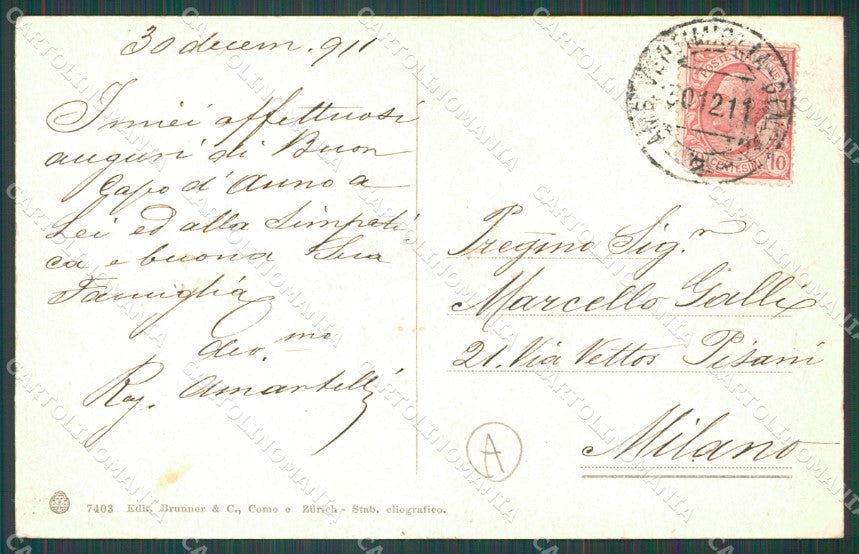 30 decem. 911
I miei affettuosi
auguri di Buon
Capo d'Anno a
Lei ed alla Simpati
ca e buona Sua
Famiglia
dev.mo
Rag.
Pregmo Sig.r
Marcello Galli
21. Via Vettor Pisani
Milano
A
AMB. VENTIMIGLIA GEN
30 12 11
POSTE
CENTESIMI 10
7403 Edit. Brunner & C., Como e Zürich - Stab. eliografico.
CARTOLINOMANIA